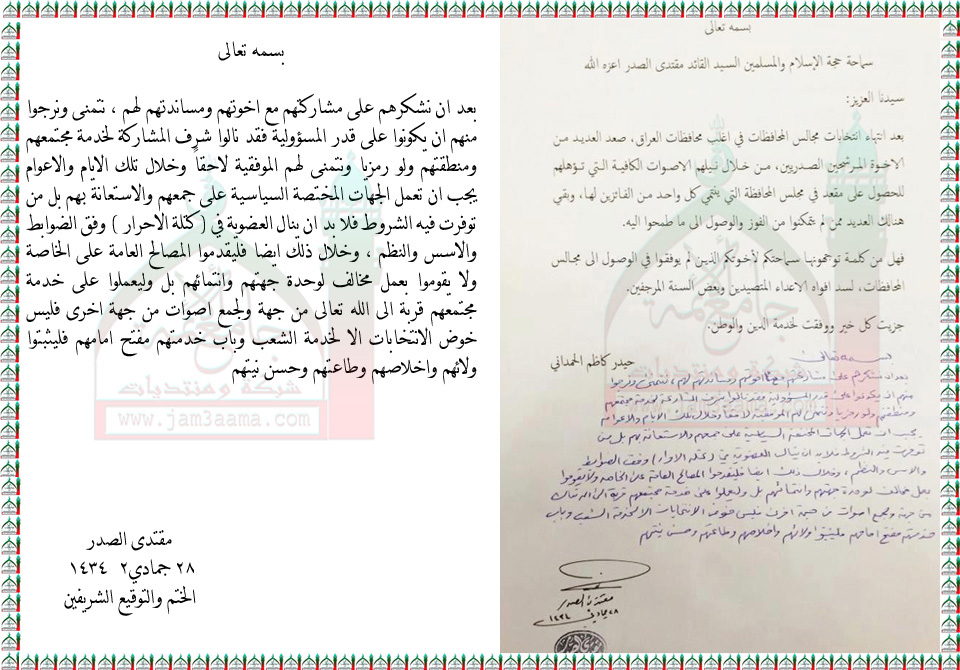 بسمه تعالى
سماحة حجة الإسلام والمسلمين السيد القائد مقتدى الصدر اعزه الله
سيدنا العزيز:
بعد انتهاء انتخابات مجالس المحافظات في اغلب محافظات العراق، صعد العديد من
الاخوة المرشحين الصدريين، من خلال نيلهم الاصوات الكافية التي تؤهلهم
للحصول على مقعد في مجلس المحافظة التي ينتمي كل واحد من الفائزين لها، وبقي
هنالك العديد ممن لم يتمكنوا من الفوز والوصول الى ما طمحوا اليه.
فهل من كلمة توجهونها سماحتكم لأخوتكم الذين لم يوفقوا في الوصول الى مجالس
المحافظات، لسد افواه الاعداء المتصيدين وبعض السنة المرجفين.
جزيت كل خير ووفقت لخدمة الدين والوطن.
حيدر كاظم الحمداني
بسمه تعالى
بعد ان نشكرهم على مشاركتهم مع اخوتهم ومساندتهم لهم ، نتمنى ونرجوا
منهم ان يكونوا على قدر المسؤولية فقد نالوا شرف المشاركة لخدمة مجتمعهم
ومنطقتهم ولو رمزيا ونتمنى لهم الموفقية لاحقا وخلال تلك الايام والاعوام
يجب ان تعمل الجهات المختصة السياسية على جمعهم والاستعانة بهم بل من
توفرت فيه الشروط فلابد ان ينال العضوية في ( كتلة الاحرار ) وفق الضوابط
والاسس والنظم ، وخلال ذلك ايضا فليقدموا المصالح العامة على الخاصة ولا يقوموا
بعمل مخالف لوحدة جهتهم وانتمائهم بل وليعملوا على خدمة مجتمعهم قربة الى الله تعالى
من جهة ولجمع اصوات من جهة اخرى فليس خوض الانتخابات الا لخدمة الشعب وباب
خدمتهم مفتح امامهم فليثبتوا ولائهم واخلاصهم وطاعتهم وحسن نيتهم
مقتدى الصدر
٢٨ جمادي٢ ١٤٣٤
بسمه تعالى
بعد ان نشكرهم على مشاركتهم مع اخوتهم ومساندتهم لهم ، نتمنى ونرجوا
منهم ان يكونوا على قدر المسؤولية فقد نالوا شرف المشاركة لخدمة مجتمعهم
ومنطقتهم ولو رمزياً ونتمنى لهم الموفقية لاحقاً وخلال تلك الايام والاعوام
يجب ان تعمل الجهات المختصة السياسية على جمعهم والاستعانة بهم بل من
توفرت فيه الشروط فلا بد ان ينال العضوية في ( كتلة الاحرار ) وفق الضوابط
والاسس والنظم ، وخلال ذلك ايضا فليقدموا المصالح العامة على الخاصة
ولا يقوموا بعمل مخالف لوحدة جهتهم وانتمائهم بل وليعملوا على خدمة
مجتمعهم قربة الى الله تعالى من جهة ولجمع اصوات من جهة اخرى فليس
خوض الانتخابات الا لخدمة الشعب وباب خدمتهم مفتح امامهم فليثبتوا
ولائهم واخلاصهم وطاعتهم وحسن نيتهم
مقتدى الصدر
٢٨ جمادي٢ ١٤٣٤
الختم والتوقيع الشريفين
شبكة ومنتديات
جامع الأئمة
www.jam3aama.com
شبكة ومنتديات
www.jam3aama.com